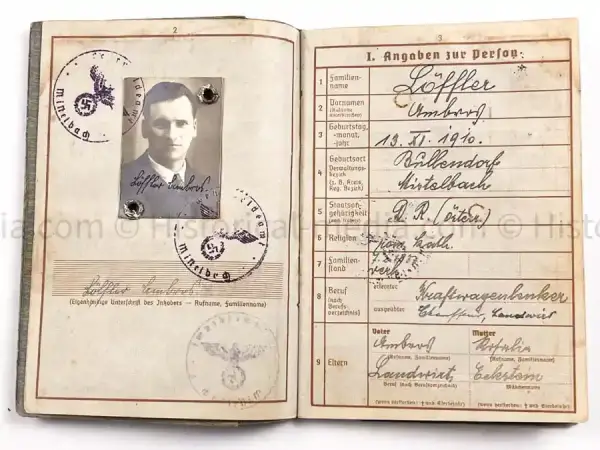 2
Mistelbach
Löffler Ambros
Mistelbach
Löffler Ambros
(Eigenhändige Unterschrift des Inhabers — Rufname, Familienname)
3
I. Angaben zur Person
1 Familien-
name Löffler
2 Vornamen
(Rufname
unterstreichen) Ambros
3 Geburtstag,
-monat,
-jahr 13. XI. 1910.
4 Geburtsort
Verwaltungs-
bezirk
(z. B. Kreis,
Reg. Bezirk) Büllendorf
Mistelbach
5 Staatsan-
gehörigkeit
D. R. (Österr.)
6 Religion röm. kath.
7 Familien-
stand
8 Beruf
(nach
Berufs-
verzeichnis) erlernter Kraftwagenlenker
ausgeübter Chauffeur, Landwirt
9 Eltern
Vater Mutter
Ambros Rosalia
(Rufname, Familienname) (Rufname, Familienname)
Landwirt Eckstein
Beruf (nach Berufsverzeichnis) Mädchenname
(wenn verstorben: † und Sterbejahr) (wenn verstorben: † und Sterbejahr)